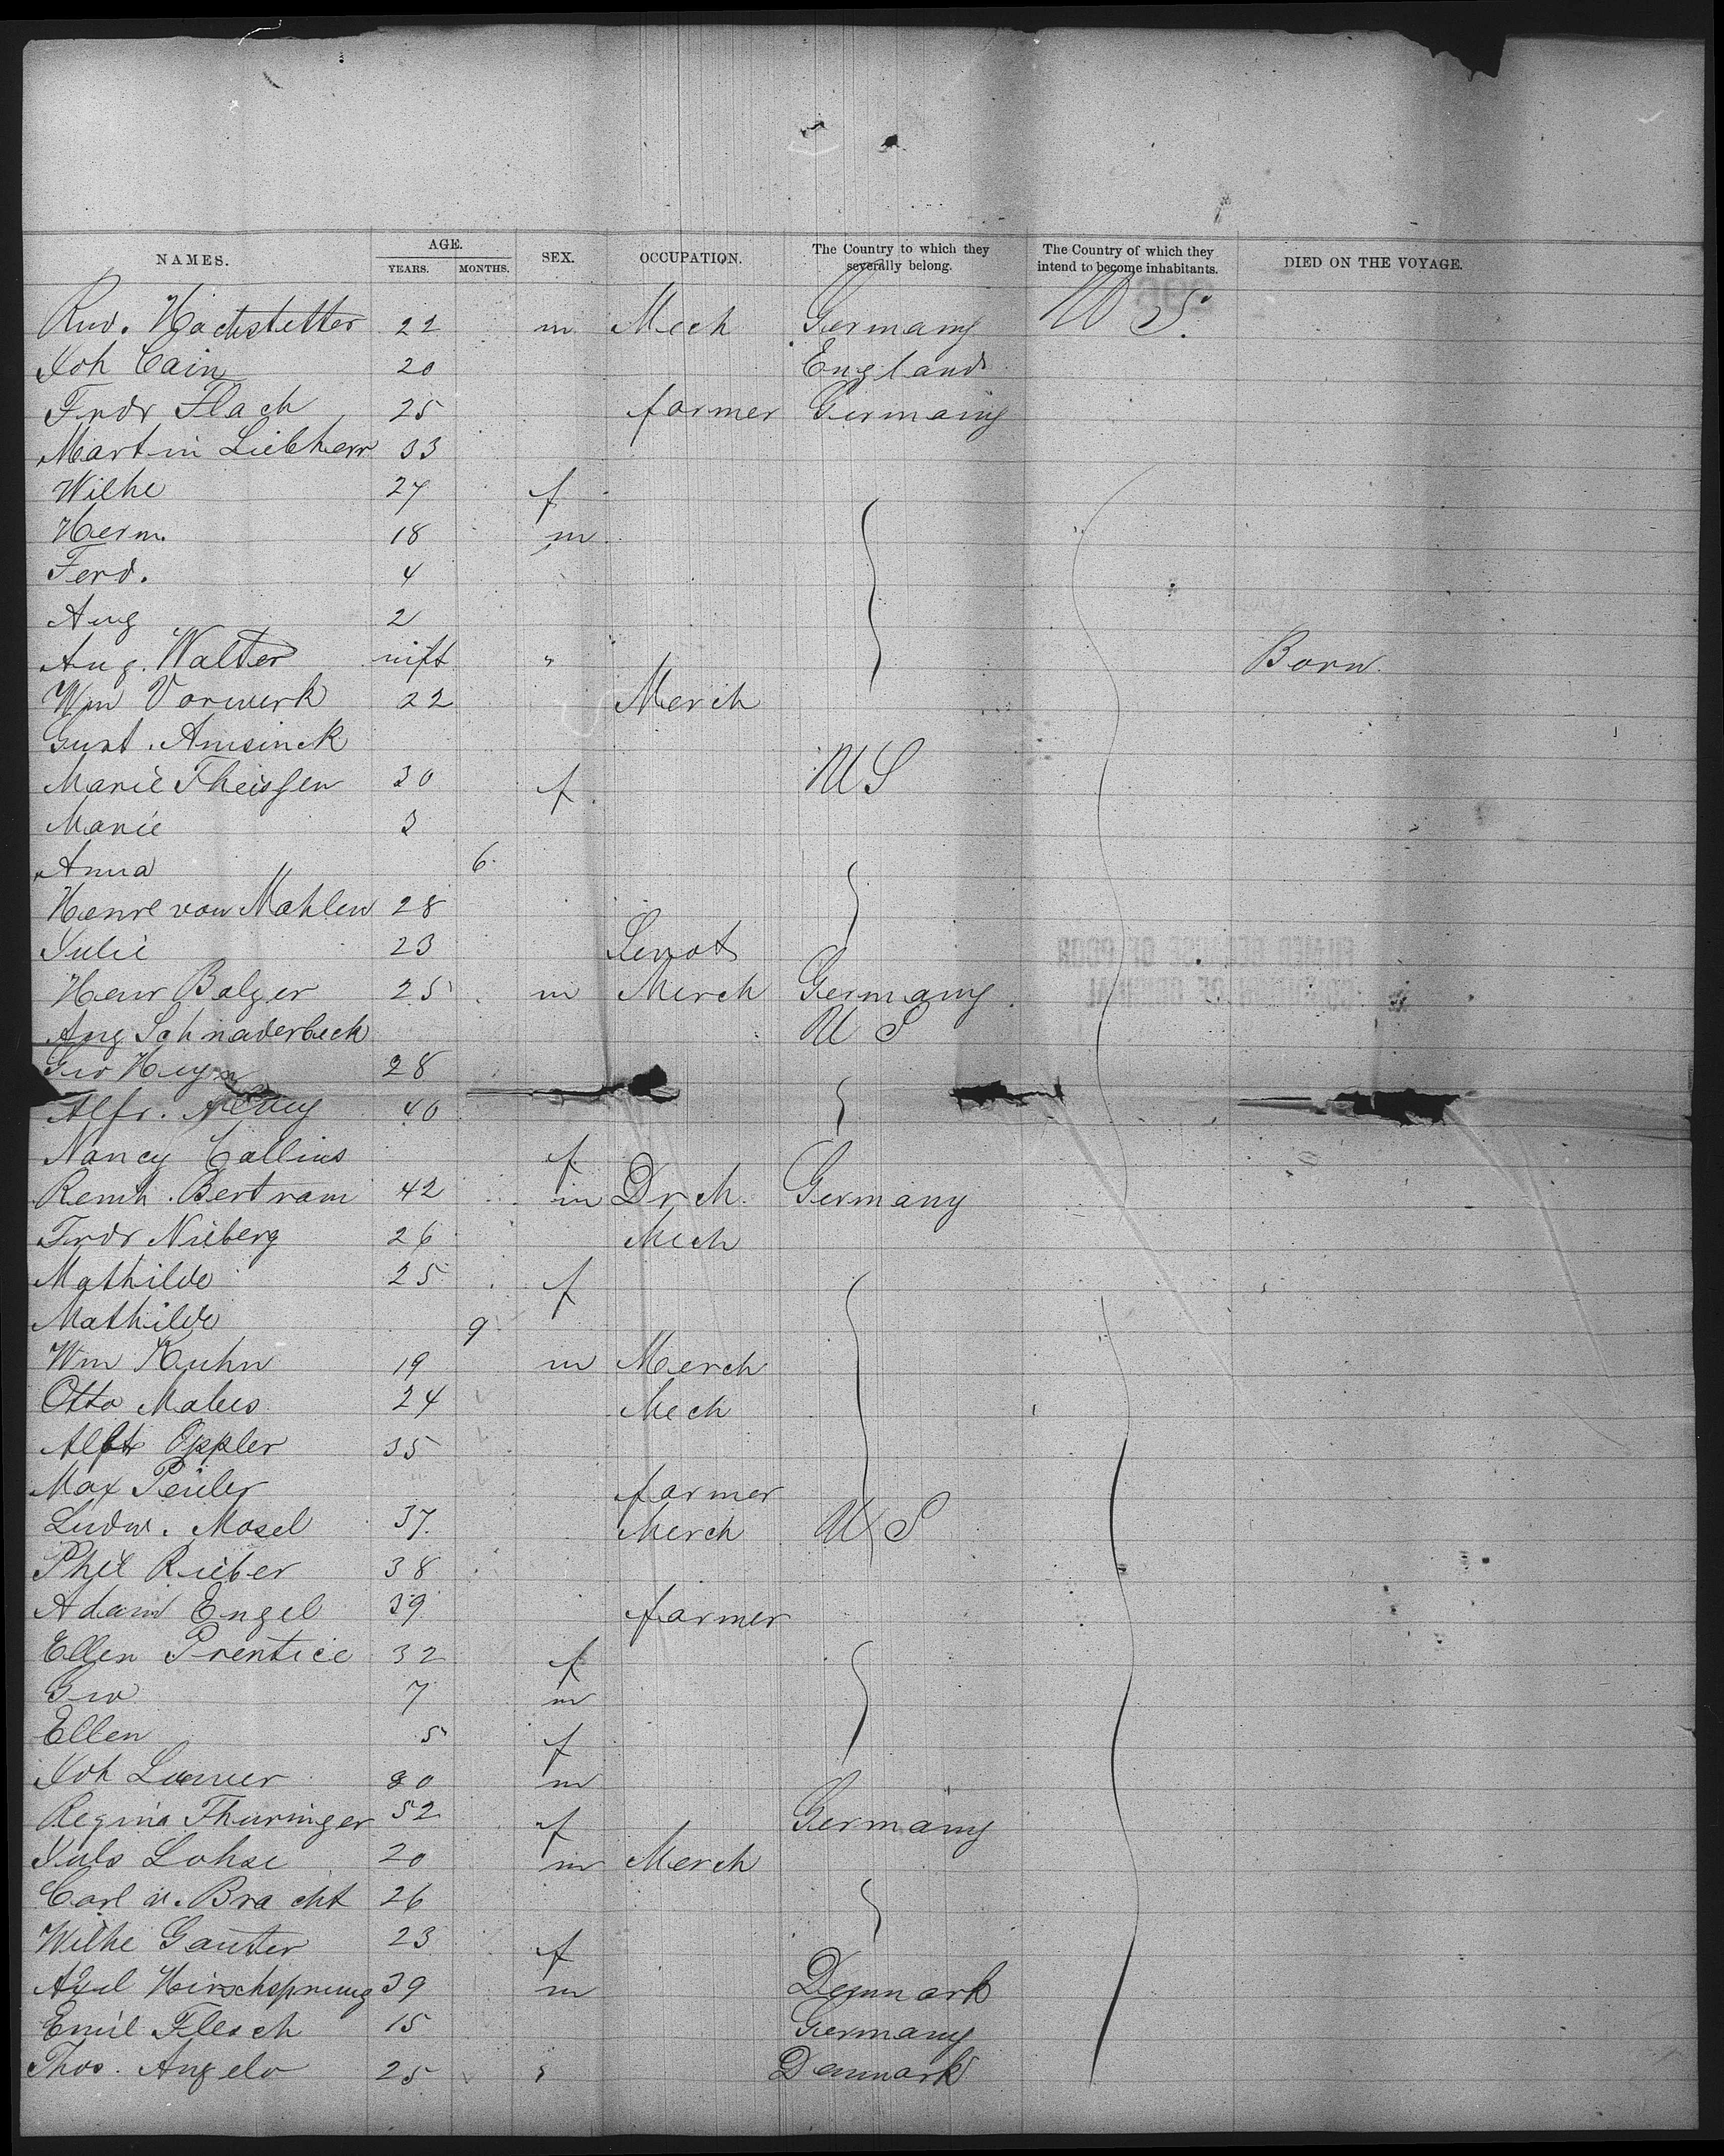 NAMES. AGE. YEARS. MONTHS. SEX. OCCUPATION. The Country to which they severally belong. The Country of which they intend to become inhabitants. DIED ON THE VOYAGE.
Rud. Hochstetter 22 m Mech Germany U S.
Joh Cain 20 England
Fredr Flach 25 farmer Germany
Martin Liebherr 33
Wilhe 27 f
Herm. 18 m
Ferd. 4
Aug 2
Aug. Walter inft " Born.
Wm Vorwerk 22 Merch
Gust. Amsinck
Marie Theissen 30 f U S
Marie 3
Anna 6
Henre von Mahlen 28
Julie 23
Henr Balzer 25 m Merch Germany
Aug Schnaderbeck U S
Geo 28
Alfr. 40
Nancy Collins f
Reinh. Bertram 42 m Dr M. Germany
Fredr Nieberg 26 Mech
Mathilde 25 f
Mathilde 9
Wm Kuhn 19 m Merch
Otto Malus 24 Mech
Albt Oppler 35
Max farmer
Ludw. Mosel 37 Merch U S
Phil Rieber 38
Adam Engel 39 farmer
Ellen Prentice 32 f
Geo 7 m
Ellen 5 f
Joh 30 m
Regina Thuringer 52 f Germany
Juls Lohse 20 m Merch
Carl v. Bracht 26
Wilhe Gauter 23 f
Axel Hirschsprung 39 m Denmark
Emil Flesch 15 Germany
Thos. Angelo 25 " Denmark